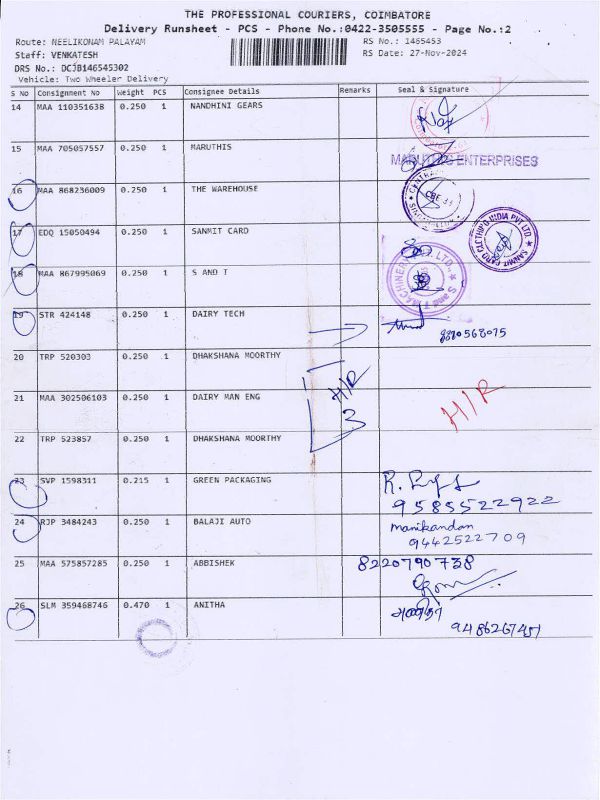 THE PROFESSIONAL COURIERS, COIMBATORE
Delivery Runsheet - PCS - Phone No.:0422-3505555 - Page No.:2
Route: NEELIKONAM PALAYAM
RS No.: 1465453
Staff: VENKATESH
RS Date: 27-Nov-2024
DRS No.: DCJB146545302
Vehicle: Two Wheeler Delivery
S No Consignment No Weight PCS Consignee Details Remarks Seal & Signature
14 MAA 110351638 0.250 1 NANDHINI GEARS
15 MAA 705057557 0.250 1 MARUTHIS
MARUTHIS ENTERPRISES
16 MAA 868236009 0.250 1 THE WAREHOUSE
17 EDQ 15050494 0.250 1 SANMIT CARD
SANMIT CARD CLOTHING INDIA PVT LTD
18 MAA 867995069 0.250 1 S AND T
S and T MACHINERY (P) LTD.
19 STR 424148 0.250 1 DAIRY TECH
20 TRP 520303 0.250 1 DHAKSHANA MOORTHY
21 MAA 302506103 0.250 1 DAIRY MAN ENG H/R 3 H/R
22 TRP 523857 0.250 1 DHAKSHANA MOORTHY
23 SVP 1598311 0.215 1 GREEN PACKAGING
9585522922
24 RJP 3484243 0.250 1 BALAJI AUTO Manikandan
9442522709
25 MAA 575857285 0.250 1 ABBISHEK 8220790738
26 SLM 359468746 0.470 1 ANITHA